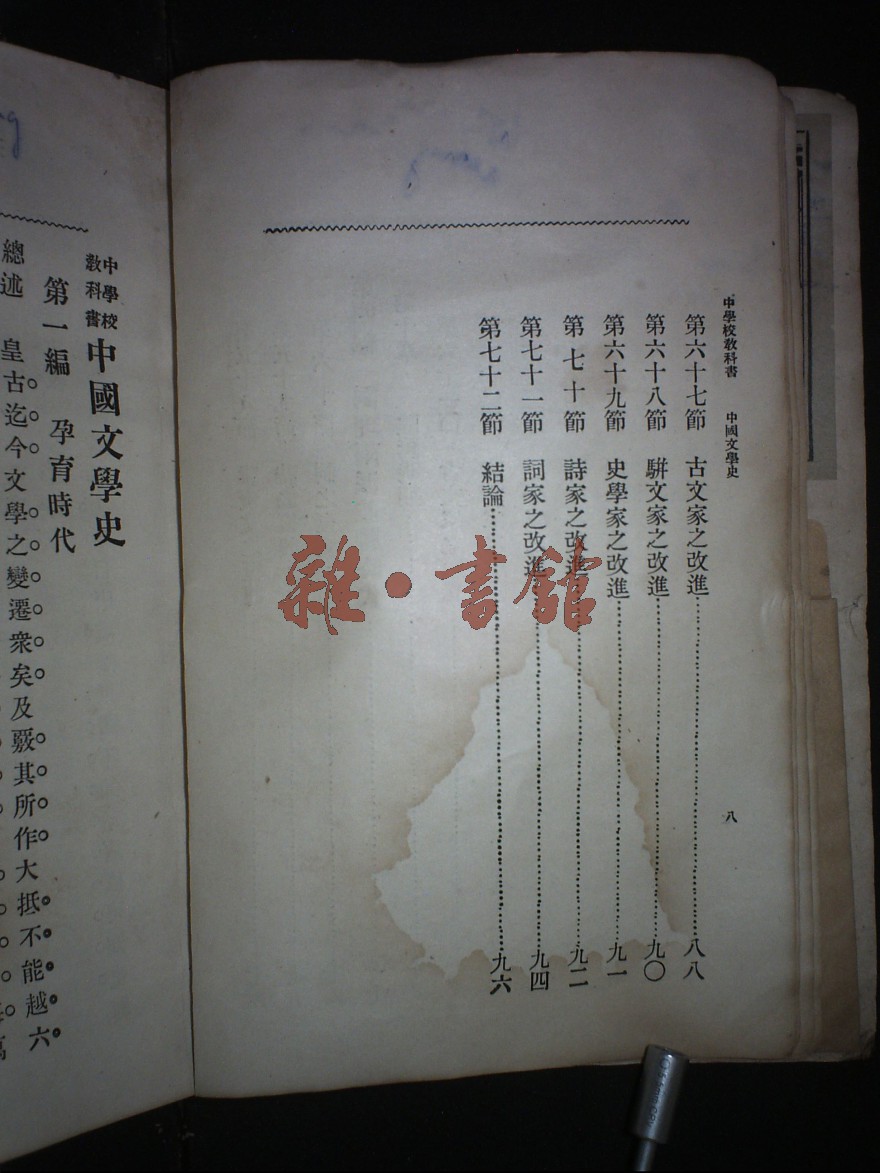 中學校教科書　中國文學史
八
第六十七節　古文家之改進……八八
第六十八節　駢文家之改進……九〇
第六十九節　史學家之改進……九一
第七十節　詩家之改進……九二
第七十一節　詞家之改進……九四
第七十二節　結論……九六
中學校
教科書
中國文學史
第一編　孕育時代
總述　皇古迄今文學之變遷衆矣及覈其所作大抵不能越六
雜·書館